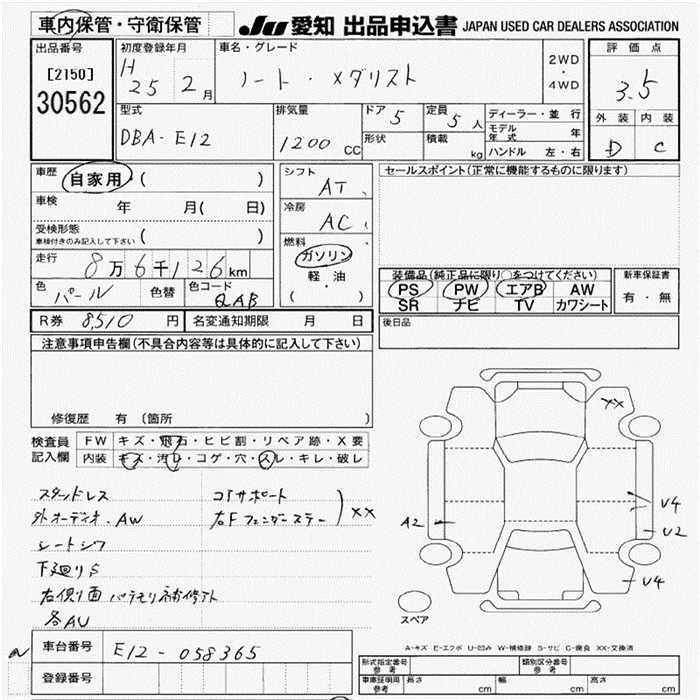 車内保管・守衛保管
JU 愛知 出品申込書 JAPAN USED CAR DEALERS ASSOCIATION
出品番号
[2150]
30562
初度登録年月
H 25 2月
車名・グレード
ノート・メダリスト
2WD
・
4WD
評価点
3.5
外装 内装
D C
型式
DBA-E12
排気量
1200 cc
ドア 5
形状
定員 5 人
積載 kg
ディーラー・並行
モデル年式 年
ハンドル 左・右
車歴 自家用 ( )
車検 年 月( 日)
受検形態
車検付きのみ記入して下さい ( )
走行 8万6千126km
色 パール 色替 色コード QAB
シフト AT
冷房 AC
燃料
ガソリン
軽・油
( )
セールスポイント(正常に機能するものに限ります)
装備品(純正品に限り○をつけてください)
PS PW エアB AW
SR ナビ TV カワシート
新車保証書
有・無
R券 8,510 円 名変通知期限 月 日
後日品
注意事項申告欄(不具合内容等は具体的に記入して下さい)
修復歴 有 (箇所 )
検査員
記入欄
FW キズ・飛石・ヒビ割・リペア跡・X要
内装 キズ・汚レ・コゲ・穴・スレ・キレ・破レ
スタッドレス
外オーディオ.AW
シートシワ
下廻りS
右側面
各AU
コアサポート
右Fフェンダーステー
XX
XX
A2
U4
U2
U4
スペア
A-キズ E-エクボ U-凹み W-補修跡 S-サビ C-腐食 XX-交換済
車台番号 E12-058365
登録番号
形式指定番号
参考
類別区分番号
参考
車庫証明用
参考
長さ cm 幅 cm 高さ cm